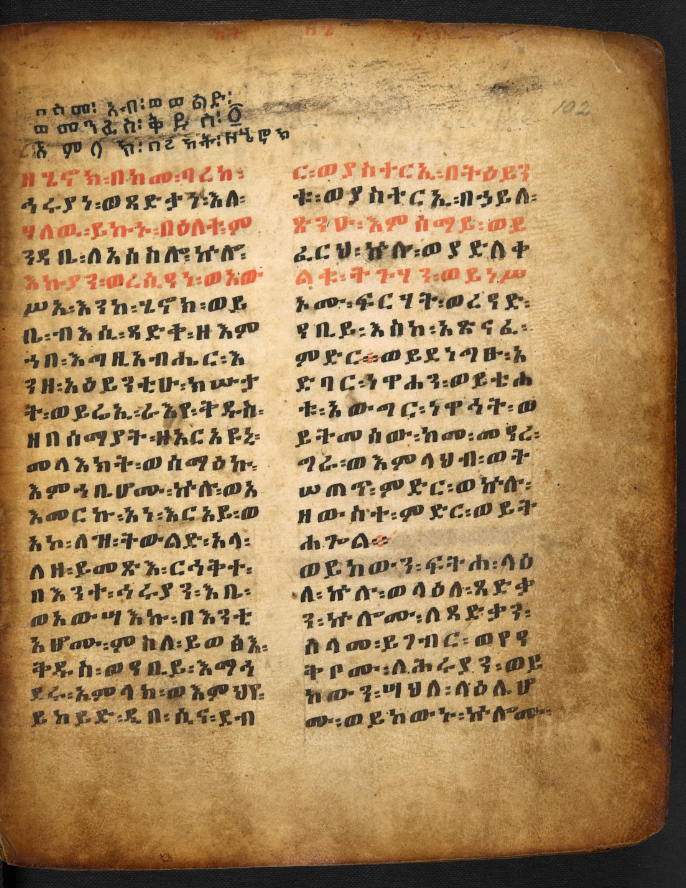 በስመ፡ አብ፡ ወወልድ፡
ወመንፈስ፡ ቅዱስ፡ ፩
አምላክ፡ በረከት፡ ዘሄኖክ
102
ዘሄኖክ፡ በከመ፡ ባረከ፡
ኅሩያነ፡ ወጻድታን፡ እለ፡
ሃለዉ፡ ይኩኑ፡ በዕለተ፡ ም
ንዳቤ፡ ለአሰስሎ፡ ኵሎ፡
እኩያን፡ ወረሲዓን፡ ወአው
ሥአ፡ እንከ፡ ሄኖክ፡ ወይ
ቤ፡ ብእሲ፡ ጻድቅ፡ ዘእም
ኀበ፡ እግዚአብሔር፡ እ
ንዘ፡ አዕይንቲሁ፡ ክሡታ
ት፡ ወይሬኢ፡ ራእየ፡ ቅዱስ፡
ዘበሰማያት፡ ዘአርአዩኒ፡
መላእክት፡ ወሰማዕኩ፡
እምኀቤሆሙ፡ ኵሎ፡ ወአ
እመርኩ፡ አነ፡ እርአይ፡ ወ
አኮ፡ ለዝ፡ ትውልድ፡ አላ፡
ለዘ፡ ይመጽእ፡ ርኅቅተ፡
በእንተ፡ ኅሩያን፡ እቤ፡
ወአውሣእኩ፡ በእንቲ
አሆሙ፡ ምስለ፡ ይወፅእ፡
ቅዱስ፡ ወዓቢይ፡ እማኅ
ደሩ፡ አምላከ፡ ወእምህየ፡
ይከይድ፡ ዲበ፡ ሲና፡ ደብ
ር፡ ወያስተርኢ፡ በትዕይን
ቱ፡ ወያስተርኢ፡ በኃይለ፡
ጽንሁ፡ እምሰማይ፡ ወይ
ፈርህ፡ ኵሉ፡ ወያድለቀ
ልቁ፡ ትጉሃን፡ ወይነሥ
ኦሙ፡ ፍርሃት፡ ወረዓድ፡
ዓቢይ፡ እስከ፡ አጽናፈ፡
ምድር። ወይደነግፁ፡ አ
ድባር፡ ነዋኀን፡ ወይቴሐ
ቱ፡ አውግር፡ ነዋኅት፡ ወ
ይትመሰው፡ ከመ፡ መዓረ፡
ግራ፡ ወእምላህብ፡ ወት
ሠጠጥ፡ ምድር፡ ወኵሉ፡
ዘውስተ፡ ምድር፡ ወይት
ሐጐል።
ወይከውን፡ ፍትሐ፡ ላዕ
ለ፡ ኵሉ፡ ወላዕለ፡ ጻድቃ
ን፡ ኵሎሙ፡ ለጻድቃን፡
ሰላመ፡ ይገብር፡ ወየዓ
ቅቦሙ፡ ለኅሩያን፡ ወይ
ከውን፡ ሣህለ፡ ላዕሌሆ
ሙ፡ ወይከውኑ፡ ኵሎሙ፡